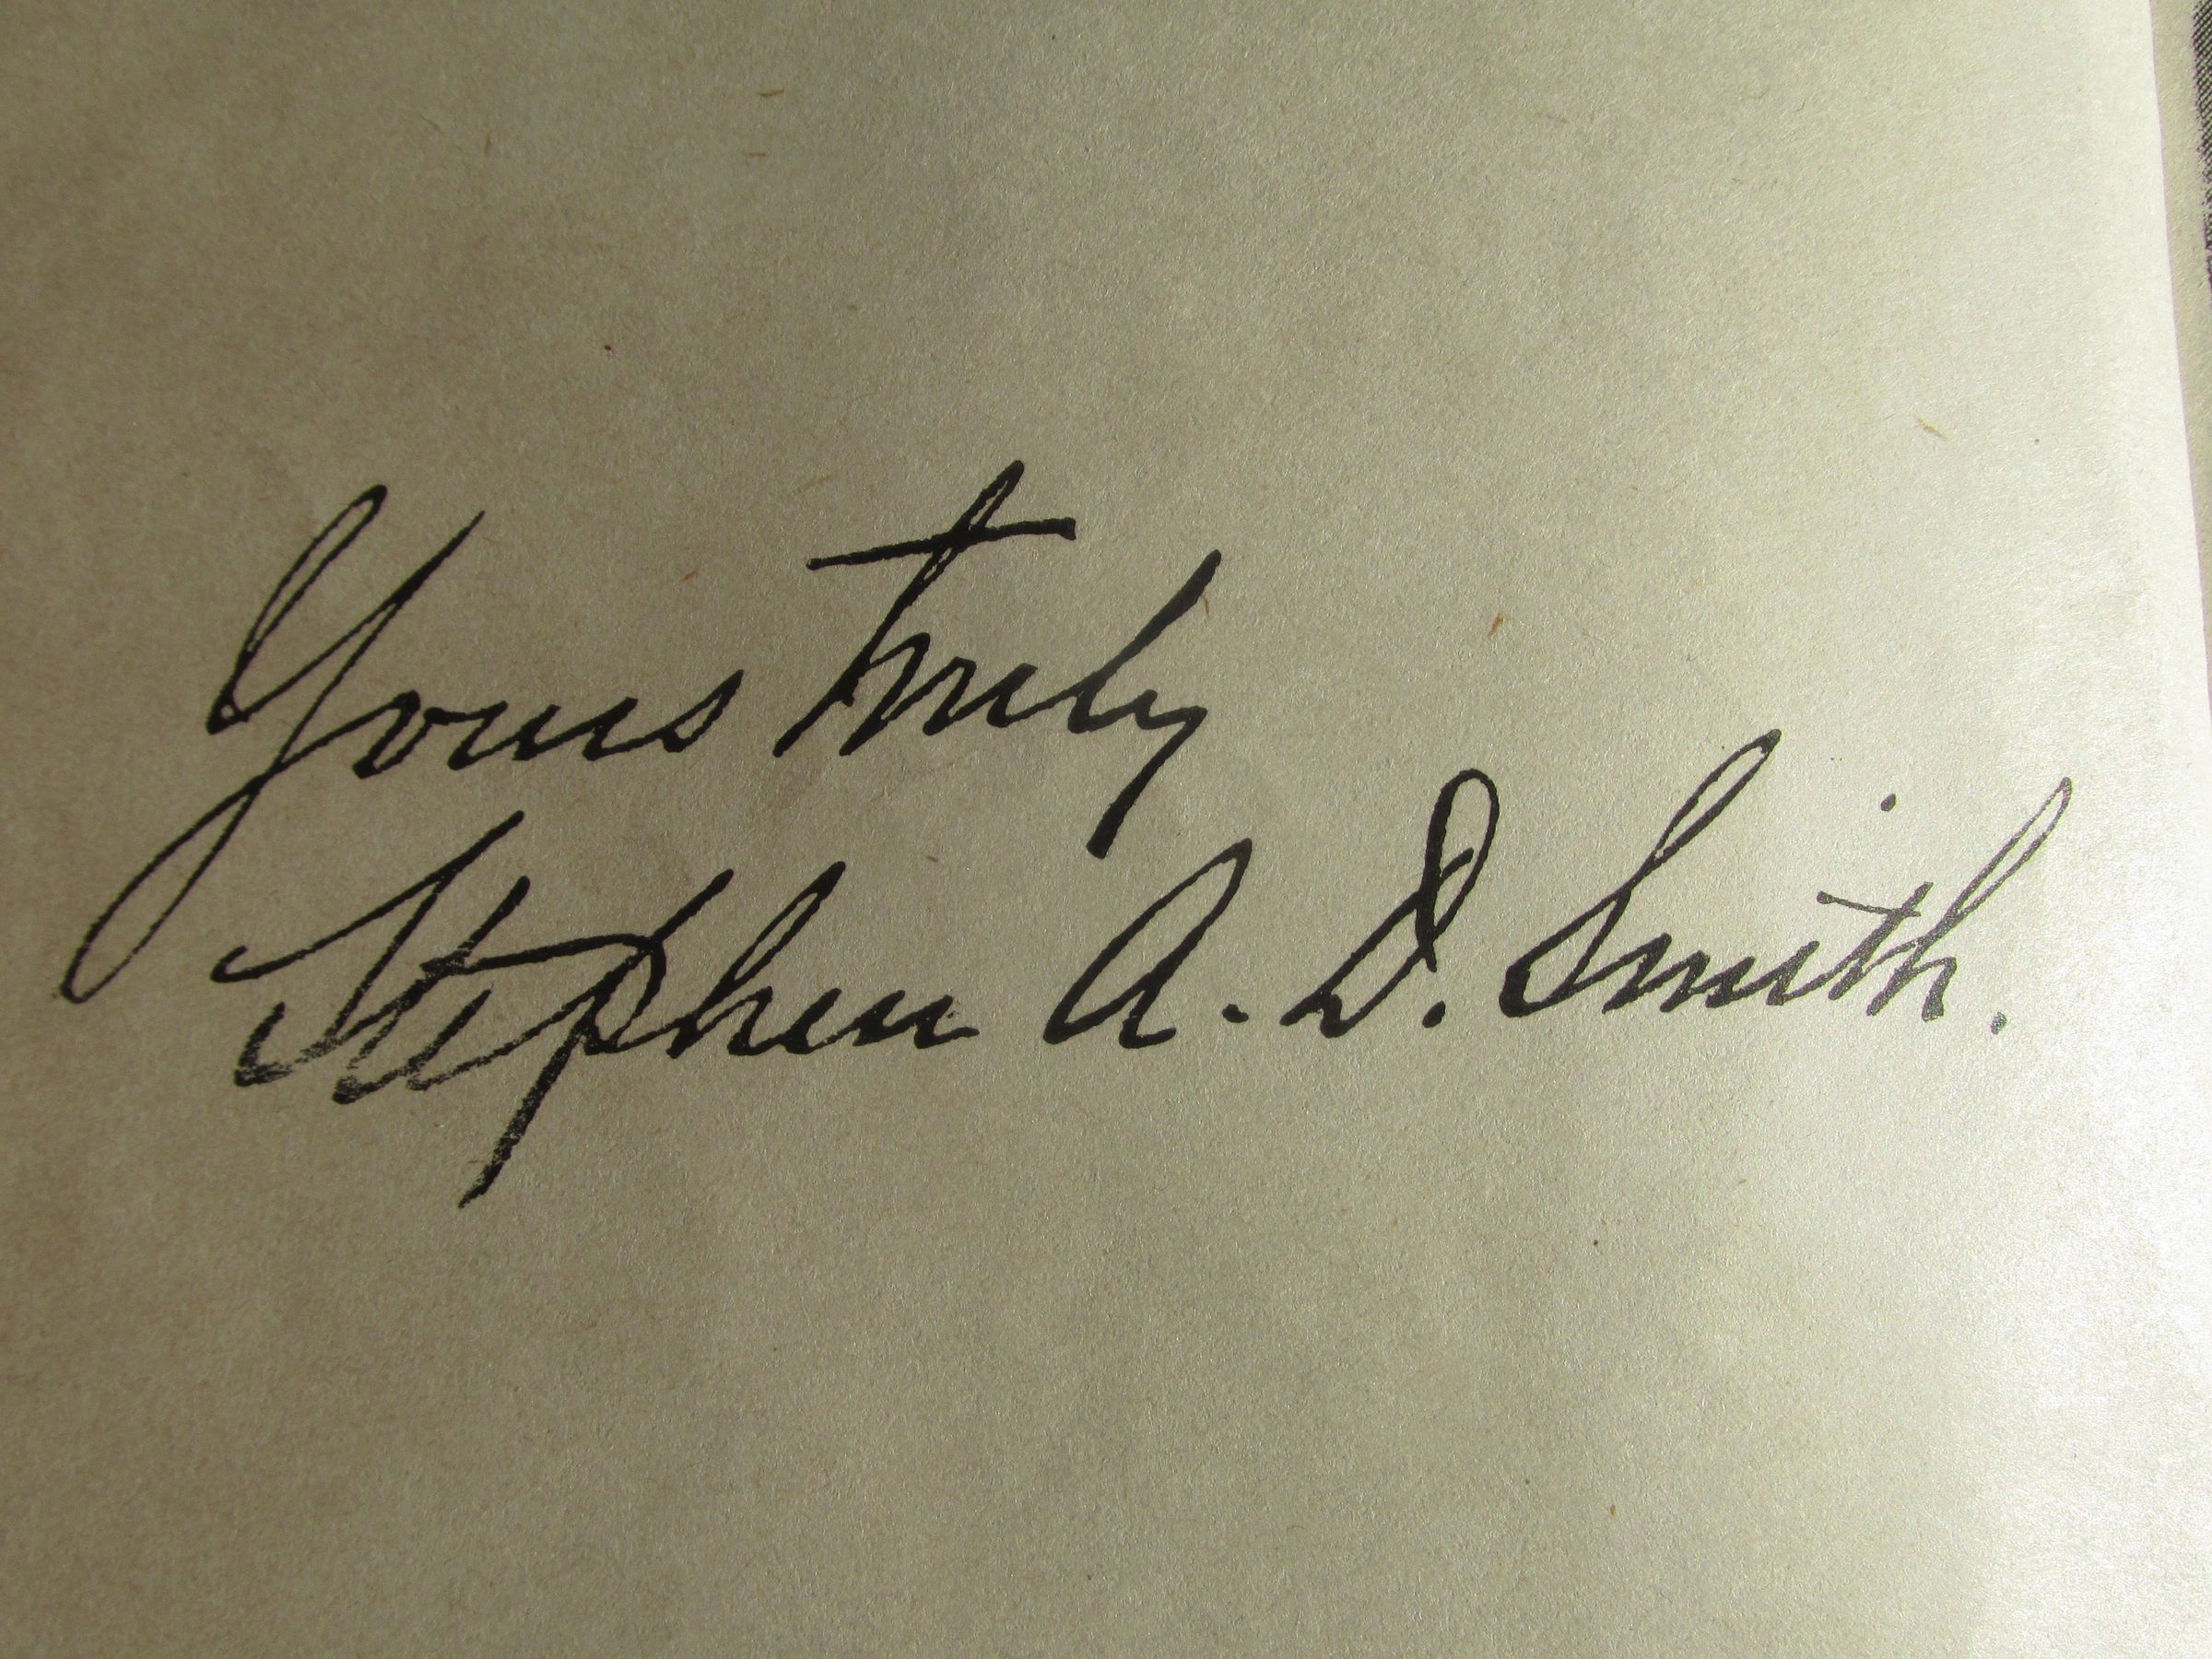 Yours truly
Stephen A. D. Smith.